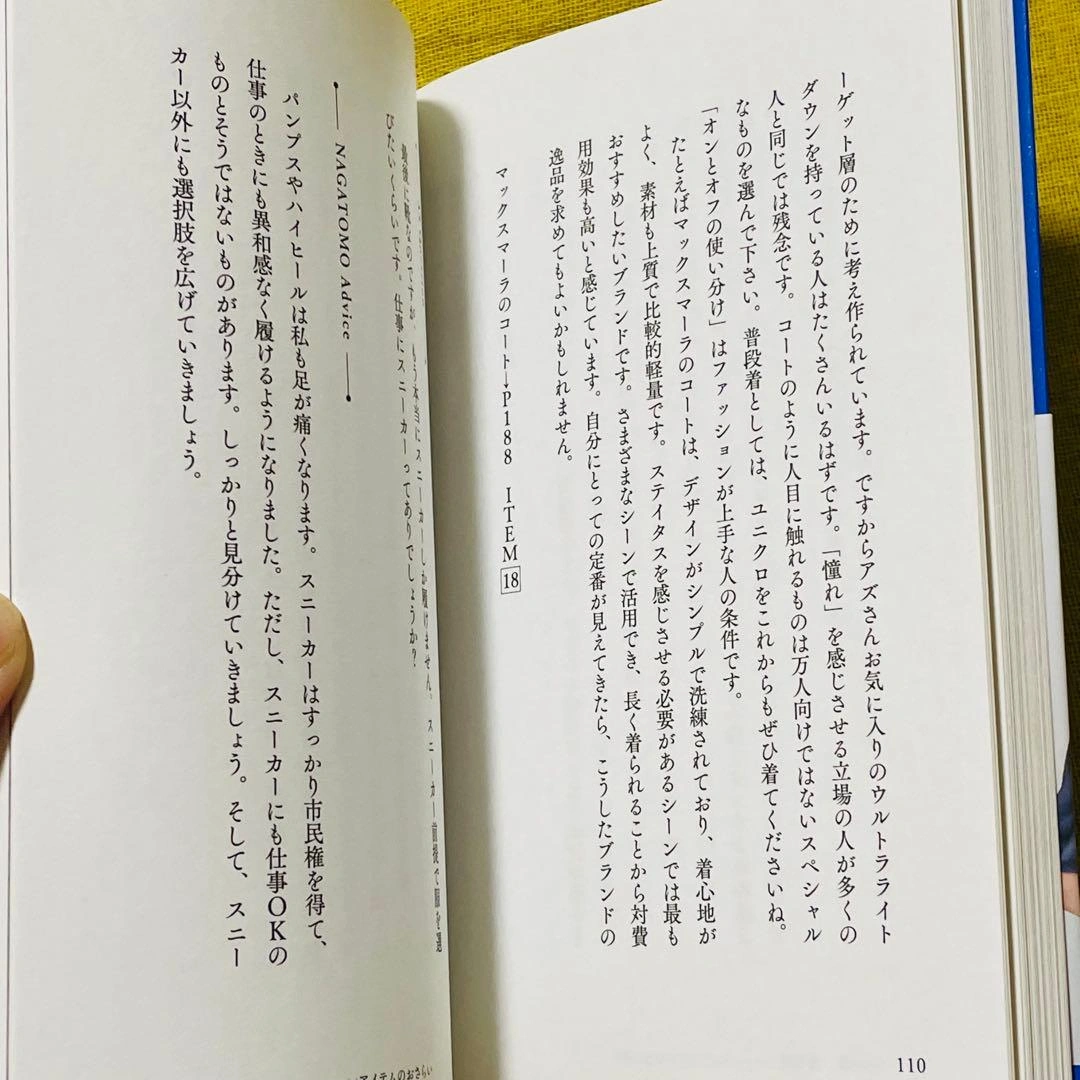 ーゲット層のために考え作られています。ですからアズさんお気に入りのウルトラライト
ダウンを持っている人はたくさんいるはずです。「憧れ」を感じさせる立場の人が多くの
人と同じでは残念です。コートのように人目に触れるものは万人向けではないスペシャル
なものを選んで下さい。普段着としては、ユニクロをこれからもぜひ着てくださいね。
「オンとオフの使い分け」はファッションが上手な人の条件です。
たとえばマックスマーラのコートは、デザインがシンプルで洗練されており、着心地が
よく、素材も上質で比較的軽量です。ステイタスを感じさせる必要があるシーンでは最も
おすすめしたいブランドです。さまざまなシーンで活用でき、長く着られることから対費
用効果も高いと感じています。自分にとっての定番が見えてきたら、こうしたブランドの
逸品を求めてもよいかもしれません。
マックスマーラのコート→P188 ITEM 18
110
なのですが、もう本当にスニーカーしか履けません。スニーカー前提で服を選
びたいくらいです。仕事にスニーカーってありでしょうか?
NAGATOMO Advice
パンプスやハイヒールは私も足が痛くなります。スニーカーはすっかり市民権を得て、
仕事のときにも異和感なく履けるようになりました。ただし、スニーカーにも仕事OKの
ものとそうではないものがあります。しっかりと見分けていきましょう。そして、スニー
カー以外にも選択肢を広げていきましょう。
アイテムのおさらい